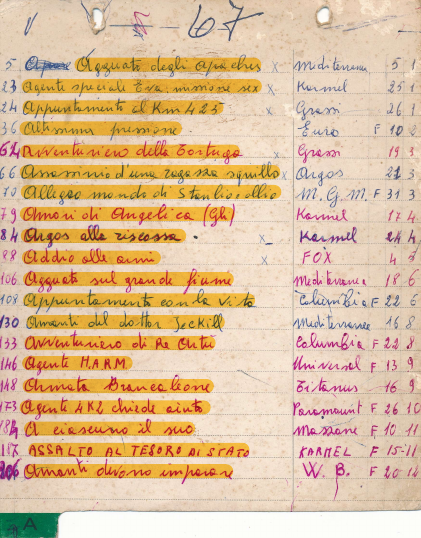 V 67
5 Agguato degli apaches x Mediterranea 5 1
23 Agente speciale Eva missione sex x Karmel 25 1
24 Appuntamento al Km 423 x Grassi 26 1
36 Altissima pressione Euro F 10 2
62 Avventuriero della Tortuga x Grassi 19 3
66 Assassinio d'una ragazza squillo x Argos 3
70 Allegro mondo di Stanlio e Ollio M.G.M. F 31 3
79 Amori di Angelica (Gli) Karmel 17 4
84 Argos alla riscossa x Karmel 24 4
88 Addio alle armi x FOX 4 5
106 Agguato sul grande fiume Mediterranea 18 6
108 Appuntamento con la vita Columbia F 22 6
130 Amanti del dottor Jeckill Mediterranea 16 8
133 Avventuriero di Re Artù Columbia F 22 8
146 Agente H.A.R.M. Universal F 13 9
148 Armata Brancaleone Titanus 16 9
173 Agente 4K2 chiede aiuto Paramount F 26 10
184 A ciascuno il suo F 10 11
187 ASSALTO AL TESORO DI STATO KARMEL F 15-11
206 Amanti devono imparare W. B. F 20 12
A